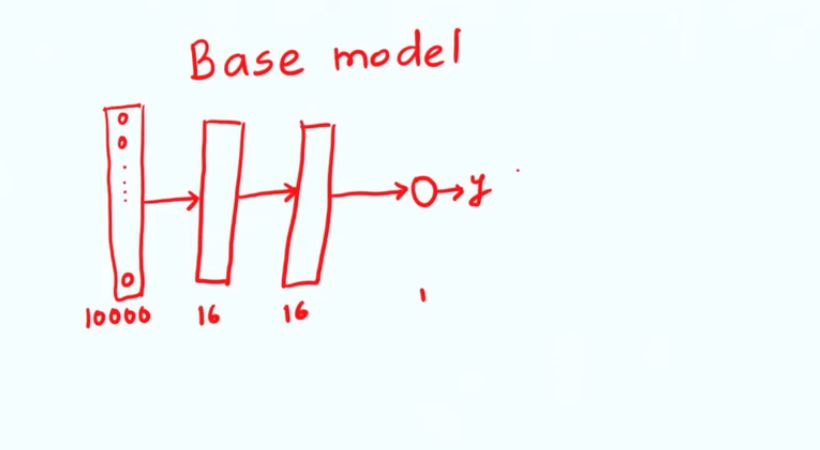 Base model
y
10000 16 16 1